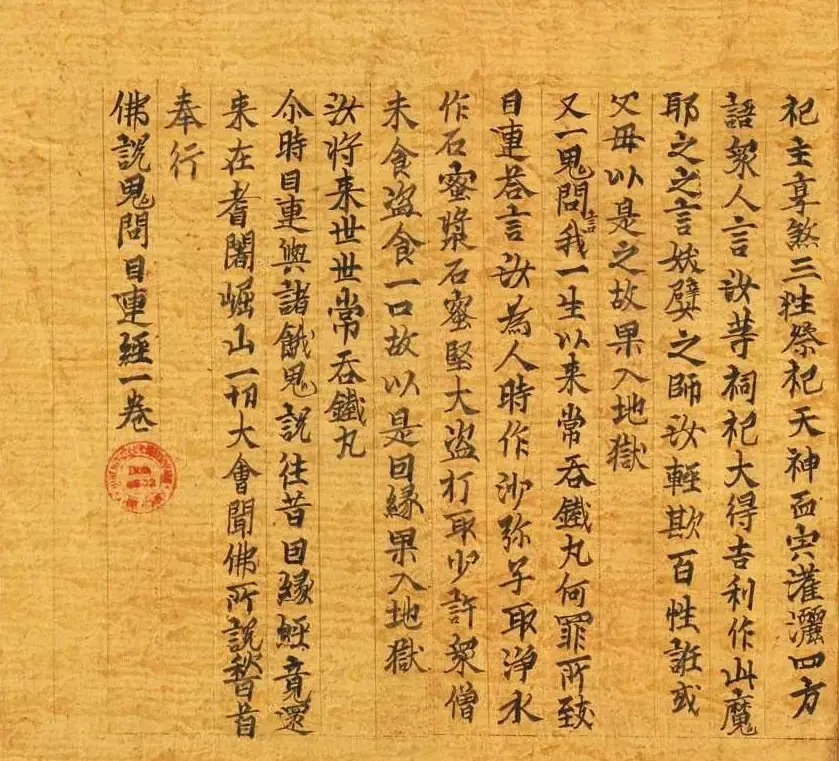 祀主享煞三牲祭祀天神血肉灌灑四方
語眾人言汝等祠祀大得吉利作此魔
耶之之言妖孽之師汝輕欺百性誑或
父母以是之故果入地獄
又一鬼問言我一生以来常吞鐵丸何罪所致
目連荅言汝為人時作沙弥子取淨水
作石蜜漿石蜜堅大盜打取少許眾僧
未食盜食一口故以是因緣果入地獄
汝将来世世常吞鐵丸
尒時目連與諸餓鬼説往昔因緣經竟還
来在耆闍崛山一切大會聞佛所説稽首
奉行
佛説鬼問目連經一卷